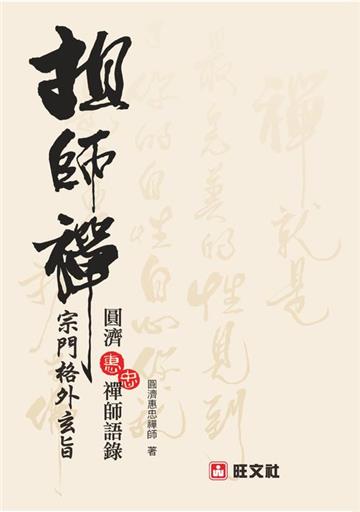 祖師禪
宗門格外玄旨
圓濟惠忠禪師語錄
圓濟惠忠禪師 著
旺文社
禪就是
最完美的性見到
了你的自性自心你